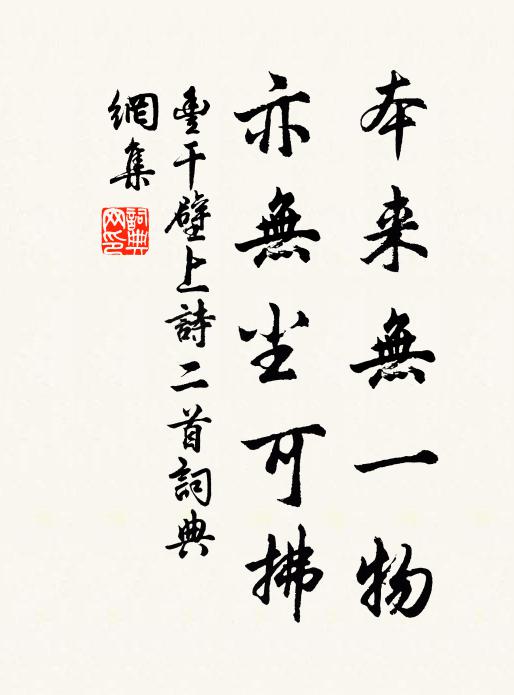 本来無一物
亦無尘可拂
豊干壁上詩二首詞典
網集
詞典
网印